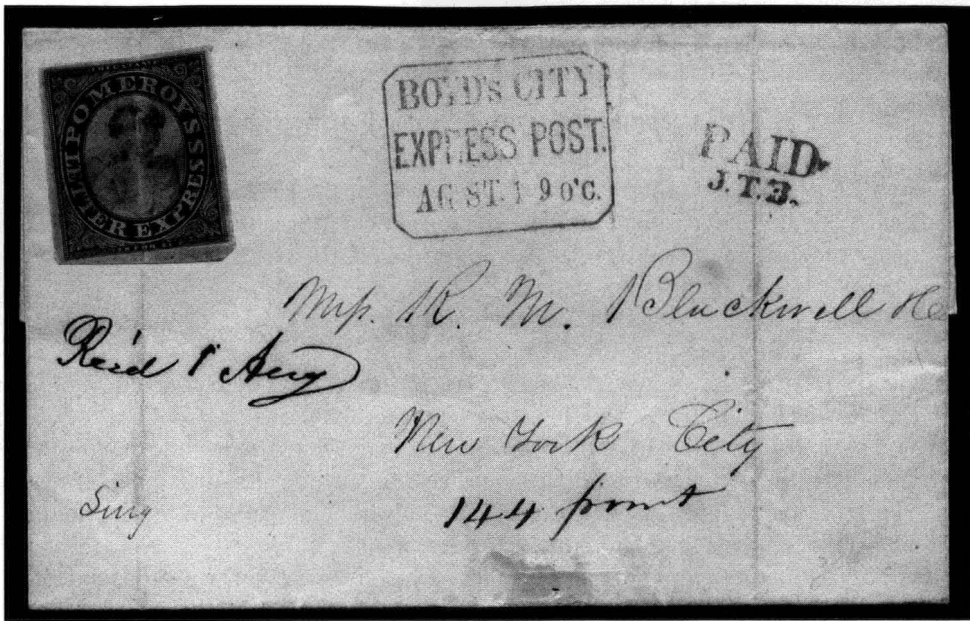 POMEROY'S
LETTER EXPRESS
BOYD'S CITY
EXPRESS POST.
AGUST. 1 9 O'C.
PAID
J.T.B.
R. M. Blackwell
Rec'd 1 Aug
New York City
144 front
Sing